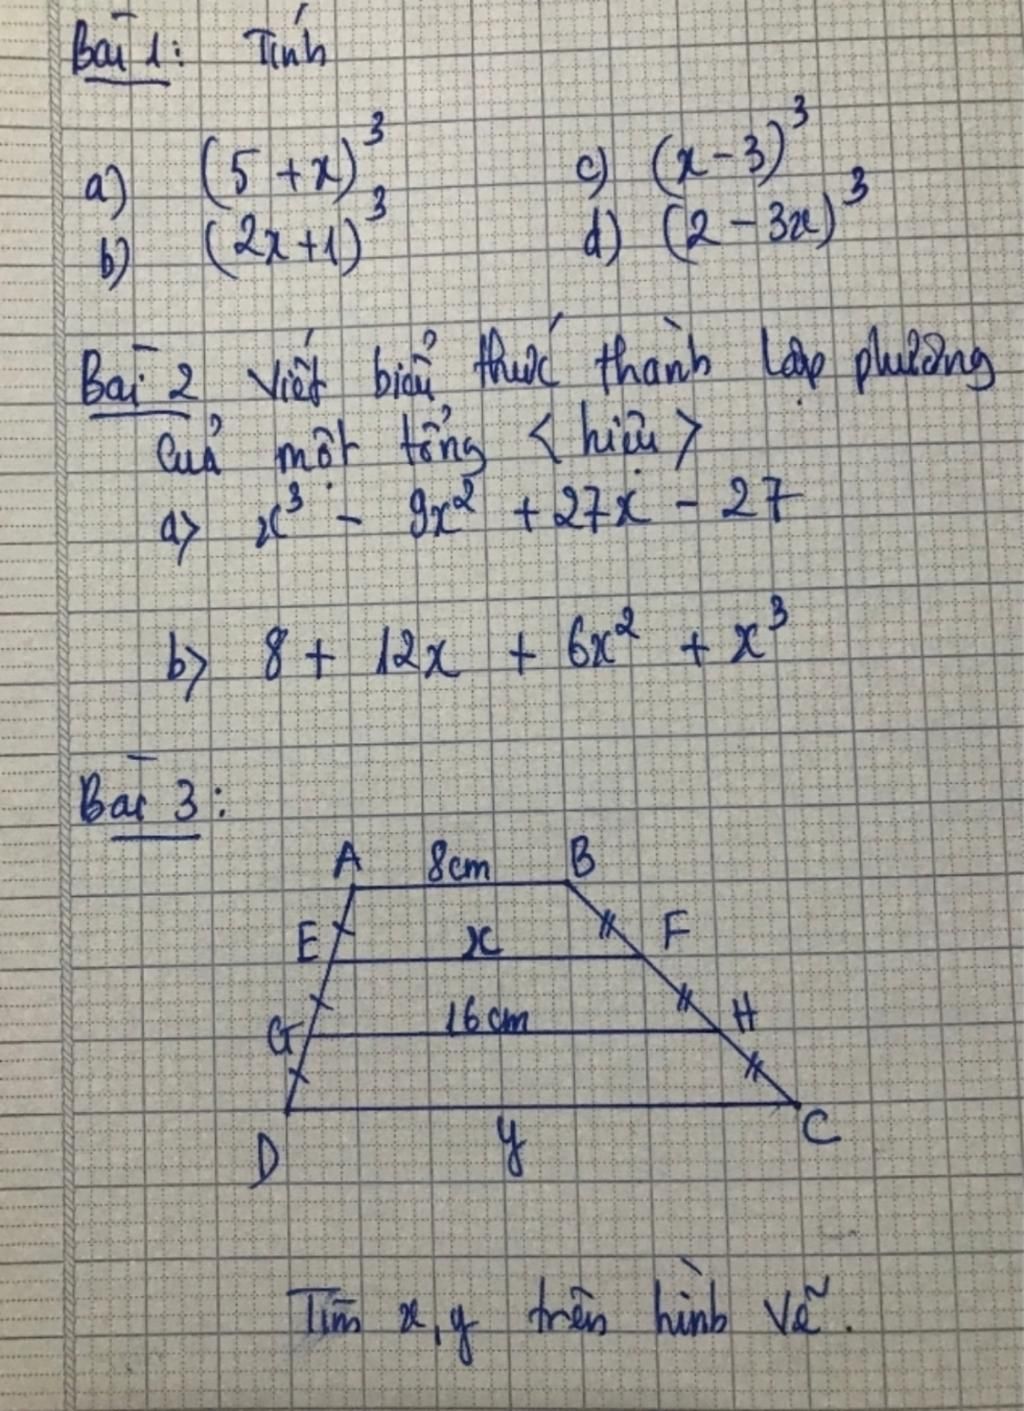 Bài 1: Tính
a) (5 + x)³ c) (x - 3)³
b) (2x + 1)³ d) (2 - 3x)³
Bài 2 Viết biểu thức thành lập phương
của một tổng < hiệu >
a> x³ - 9x² + 27x - 27
b> 8 + 12x + 6x² + x³
Bài 3:
A 8cm B
E x F
G 16cm H
D y C
Tìm x, y trên hình vẽ.